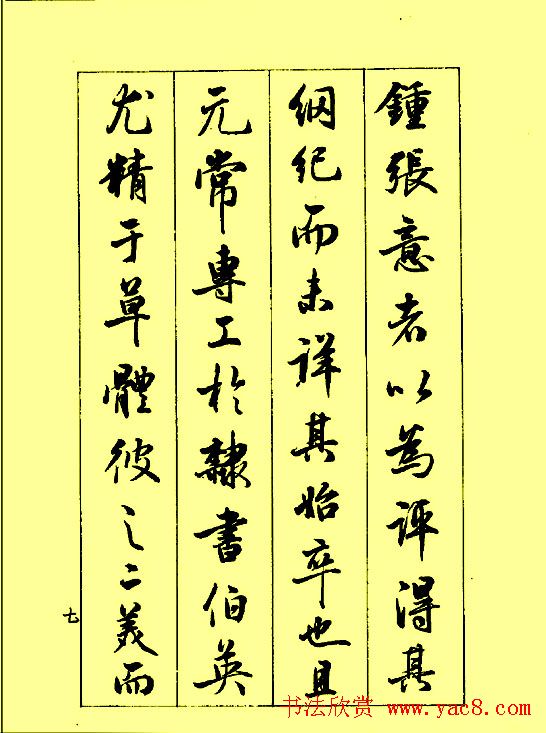 鍾張意者以為評得其
綱纪而未詳其始卒也且
元常專工於隸書伯英
尤精于草體彼之二美而
七
书法欣赏 www.yac8.com